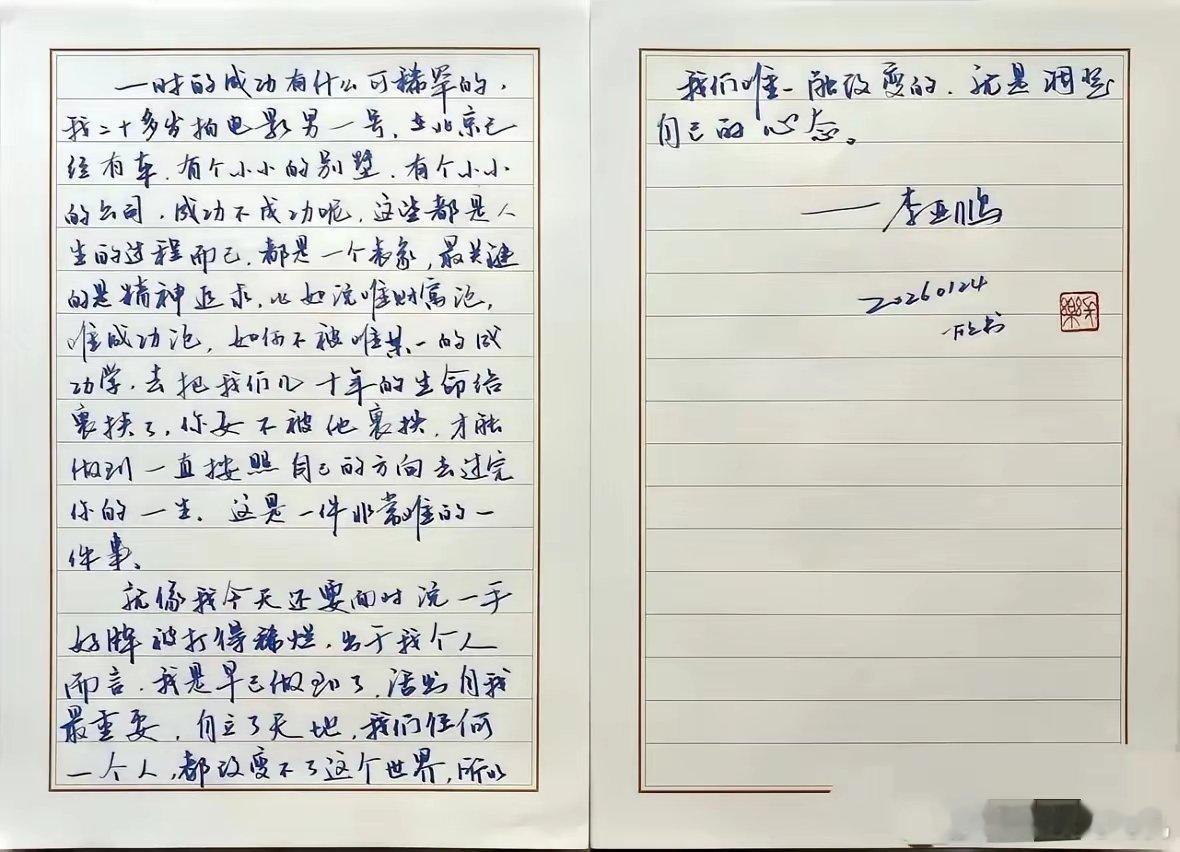 一时的成功有什么可稀罕的，
我二十多岁拍电影男一号，在北京已
经有车，有个小小的别墅，有个小小
的公司，成功不成功呢，这些都是人
生的过程而已，都是一个表象，最关键
的是精神追求，比如说唯财富论，
唯成功论，如何不被唯某一的成
功学，去把我们几十年的生命给
裹挟了，你要不被他裹挟，才能
做到一直按照自己的方向去过完
你的一生，这是一件非常难的一
件事、
就像我今天还要面对说一手
好牌被打得稀烂，出于我个人
而言，我是早已做到了，活出自我
最重要，自立了天地，我们任何
一个人，都改变不了这个世界，所以
我们唯一能改变的，就是调整
自己的心态。
——李亚鹏
20260124